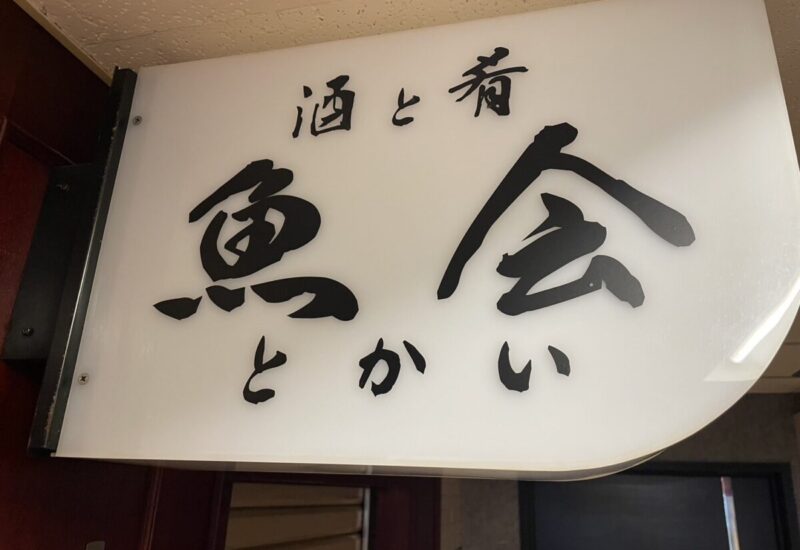 酒と肴
魚会
とかい